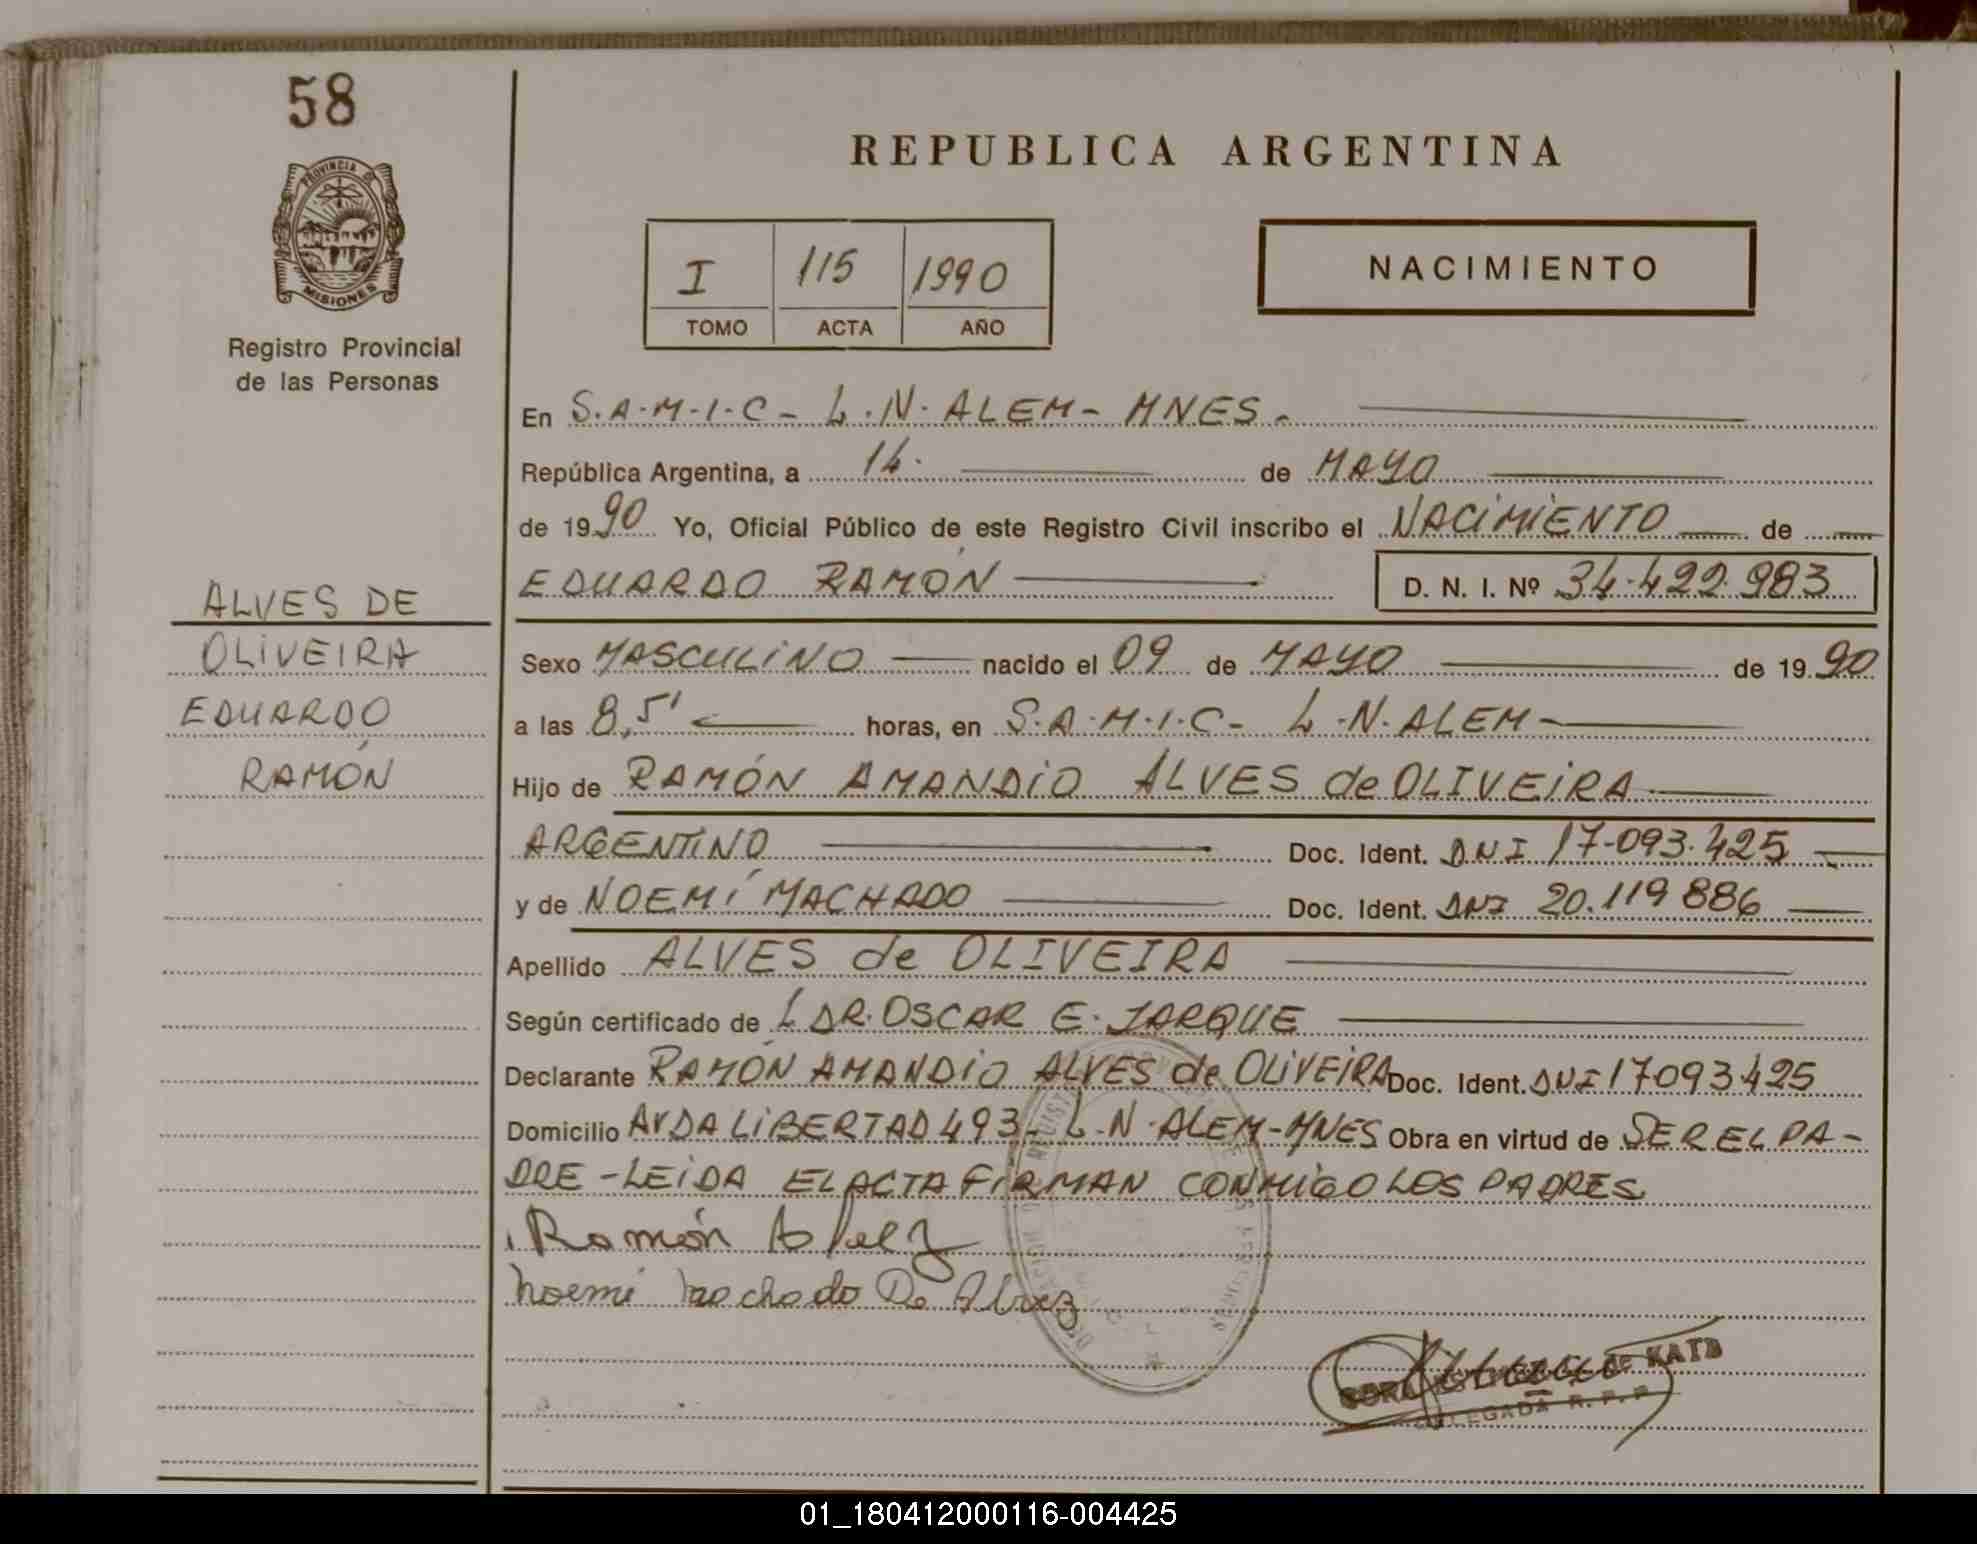 58
PROVINCIA DE
MISIONES
Registro Provincial
de las Personas
REPUBLICA ARGENTINA
I 115 1990
TOMO ACTA AÑO
NACIMIENTO
En S.A.M.I.C - L.N. ALEM - MNES.-
República Argentina, a 14. de MAYO
de 1990 Yo, Oficial Público de este Registro Civil inscribo el NACIMIENTO de
EDUARDO RAMÓN D. N. I. Nº 34.422.983
ALVES DE
OLIVEIRA
EDUARDO
RAMÓN
Sexo MASCULINO nacido el 09 de MAYO de 1990
a las 8,5' horas, en S.A.M.I.C- L.N. ALEM-
Hijo de RAMÓN AMANDIO ALVES de OLIVEIRA
ARGENTINO Doc. Ident. DNI 17.093.425
y de NOEMÍ MACHADO Doc. Ident. DNI 20.119886
Apellido ALVES de OLIVEIRA
Según certificado de DR. OSCAR E. JARQUE
Declarante RAMÓN AMANDIO ALVES de OLIVEIRA Doc. Ident. DNI 17093425
Domicilio AVDA LIBERTAD 493- L.N. ALEM-MNES Obra en virtud de SER EL PA-
DRE - LEIDA EL ACTA FIRMAN CONMIGO LOS PADRES
Ramón Alvez
Noemi Machado De Alvez
de KATZ
DELEGADA R. P. P.
01_180412000116-004425